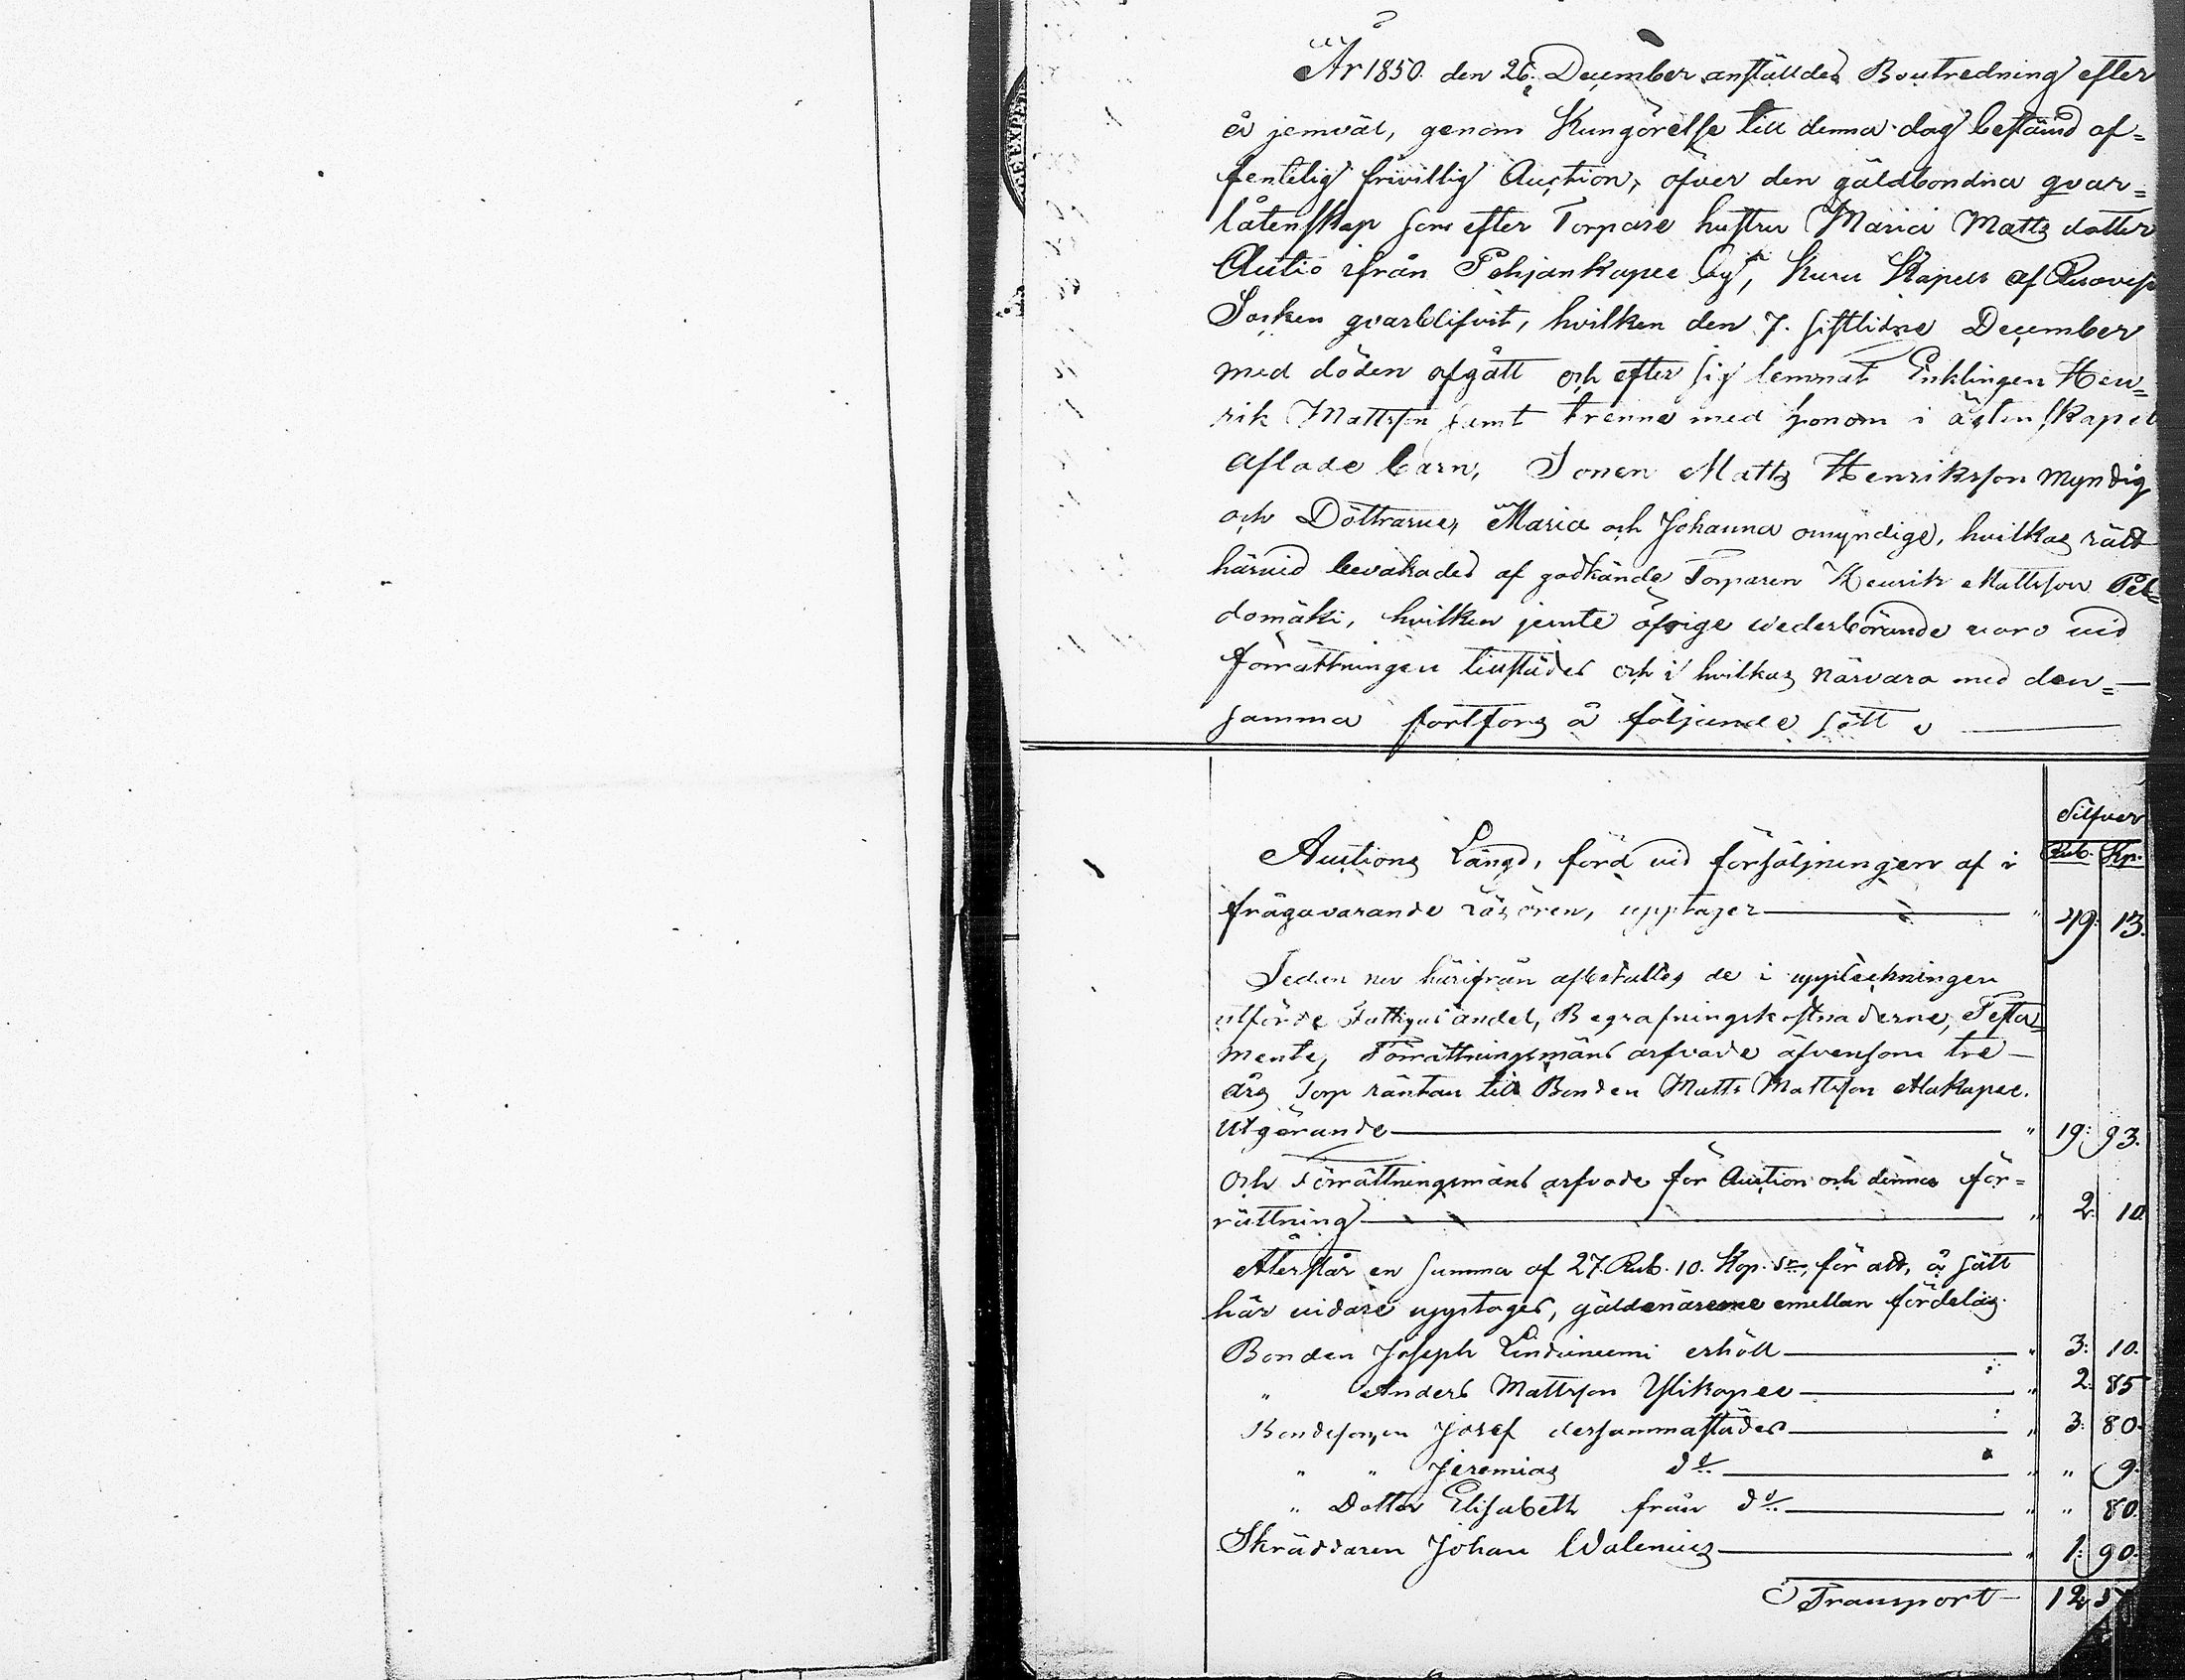 År 1850. den 26. December anställdes Boutredning efter
å jemväl, genom Kungörelse till denna dag bestämd of=
fentelig frivillig Auction, öfver den gäldbondna qvar=
låtenskap som efter Torpare hustru Maria Matts dotter
Autio ifrån Pohjankapee by, Kuru Kapell af Ruovesi
Socken qvarblifvit, hvilken den 7. sistlidne December
med döden afgått och efter sig lemnat Enklingen Hen=
rik Mattsson samt trenne med honom i ägtenskapet
aflade barn, Sonen Matts Henriksson myndig
och Döttrarne, Maria och Johanna omyndige, hvilkas rätt
härvid bevakades af godkände Torparen Henrik Mattsson Pel=
domäki, hvilken jemte öfrige wederbörande voro vid
förrättningen tillstädes och i hvilkas närvaro med den=
samma fortfors å följande sätt
Silfver
Rub. Kp.
Auctions Längd, förd vid försäljningen af i
frågavarande Lösören, upptager " 49. 13.
Seden nu härifrån afbetaltes de i uppteckningen
utförde Fattigas andel, Begrafningskostnaderne, Testa=
mente, Förrättningsmäns arfvode äfvensom tre
års Torp räntan till Bonden Matts Mattsson Alakapee.
Utgörande " 19: 93.
Och Förrättningsmäns arfvode för Auction och denna för=
rättning " 2. 10
Återstår en summa af 27. Rub. 10. Kop. Sr, för att, å sätt
här vidare upptages, gäldenärerne emellan fördelas.
Bonden Joseph Lindiniemi erhöll " 3: 10.
" Anders Mattsson Ylikapee " 2: 85
Bondesonen Josef dersammastädes " 3: 80.
" " Jeremias do " " 9.
" Dotter Elisabeth från do " " 80.
Skräddaren Johan Walenius " 1: 90.
Transport 12